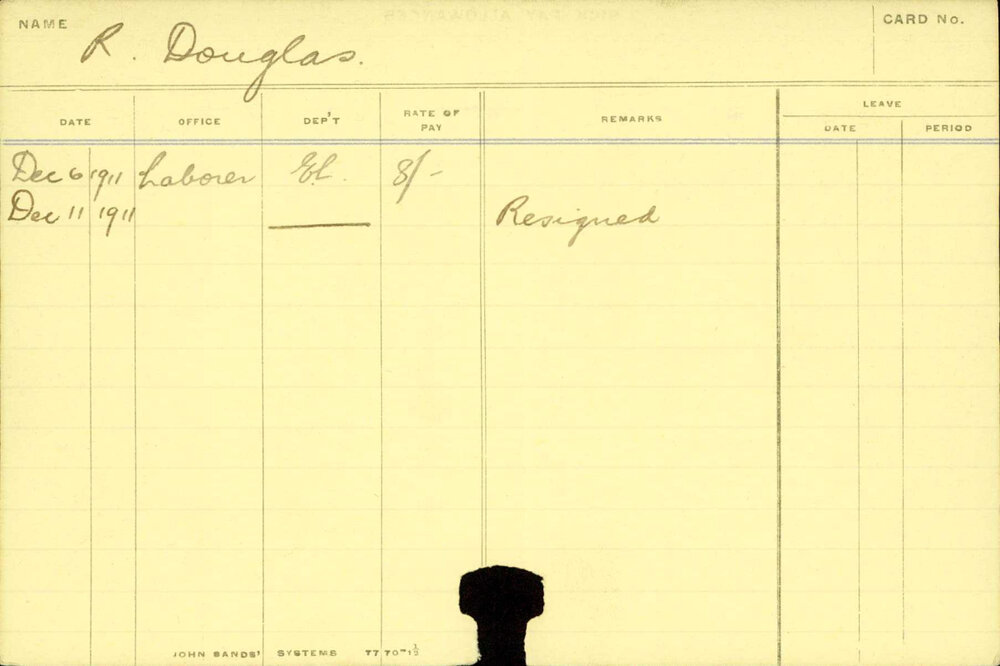 NAME R. Douglas. CARD No.
LEAVE
DATE OFFICE DEP'T RATE OF PAY REMARKS DATE PERIOD
Dec 6 1911 Laborer El. 8/-
Dec 11 1911 Resigned
JOHN SANDS' SYSTEMS